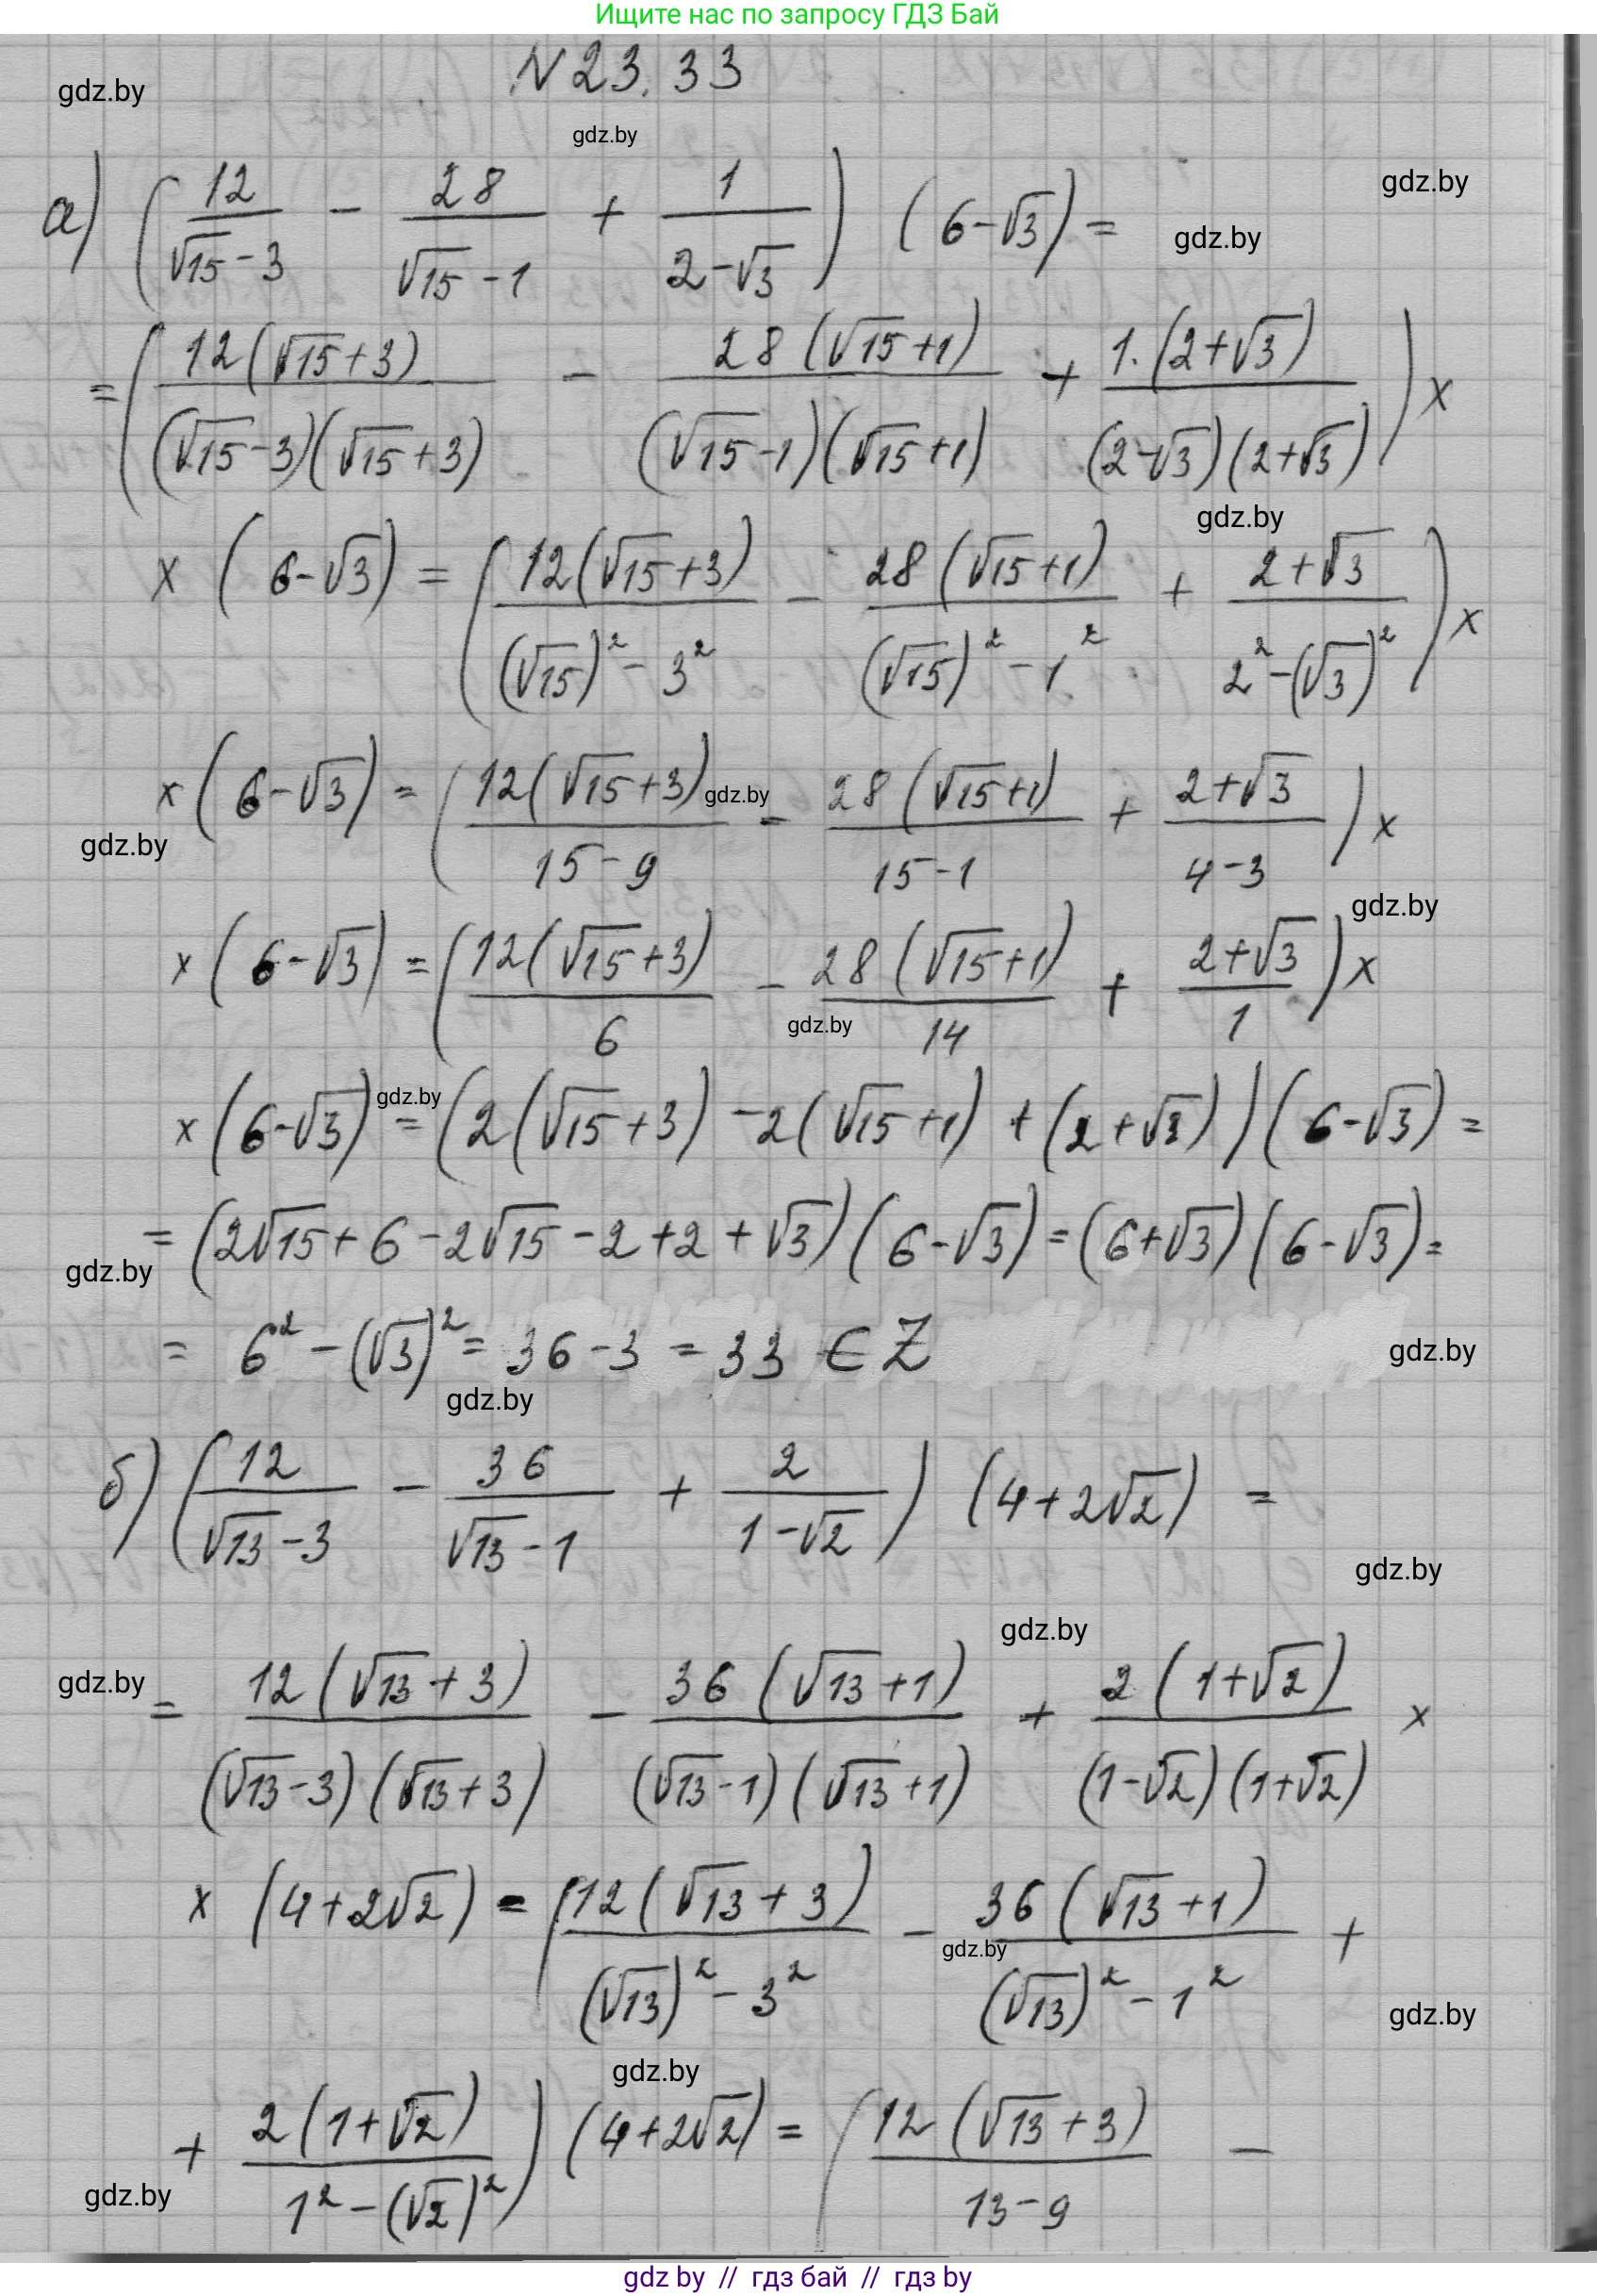 Ищите нас по запросу ГДЗ Бай
N 23.33
gdz.by
gdz.by
gdz.by
gdz.by
а) (12/(√15-3) - 28/(√15-1) + 1/(2-√3)) (6-√3) =
= (12(√15+3)/((√15-3)(√15+3)) - 28(√15+1)/((√15-1)(√15+1)) + 1·(2+√3)/((2-√3)(2+√3))) x
gdz.by
x (6-√3) = (12(√15+3)/((√15)²-3²) - 28(√15+1)/((√15)²-1²) + (2+√3)/(2²-(√3)²)) x
x (6-√3) = (12(√15+3)/(15-9) - 28(√15+1)/(15-1) + (2+√3)/(4-3)) x
gdz.by
gdz.by
gdz.by
x (6-√3) = (12(√15+3)/6 - 28(√15+1)/14 + (2+√3)/1) x
gdz.by
gdz.by
x (6-√3) = (2(√15+3) - 2(√15+1) + (2+√3)) (6-√3) =
= (2√15+6-2√15-2+2+√3) (6-√3) = (6+√3) (6-√3) =
gdz.by
= 6² - (√3)² = 36-3 = 33 ∈ Z
gdz.by
gdz.by
б) (12/(√13-3) - 36/(√13-1) + 2/(1-√2)) (4+2√2) =
gdz.by
gdz.by
gdz.by
= 12(√13+3)/((√13-3)(√13+3)) - 36(√13+1)/((√13-1)(√13+1)) + 2(1+√2)/((1-√2)(1+√2)) x
x (4+2√2) = (12(√13+3)/((√13)²-3²) - 36(√13+1)/((√13)²-1²) +
gdz.by
gdz.by
gdz.by
+ 2(1+√2)/(1²-(√2)²)) (4+2√2) = (12(√13+3)/(13-9) -
gdz.by
gdz by // гдз бай // гдз by